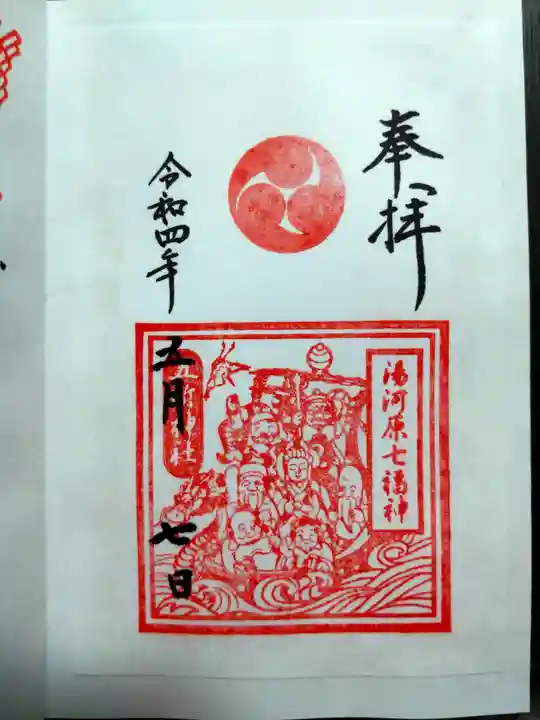 奉拝
湯河原七福神
令和四年
五月
七日